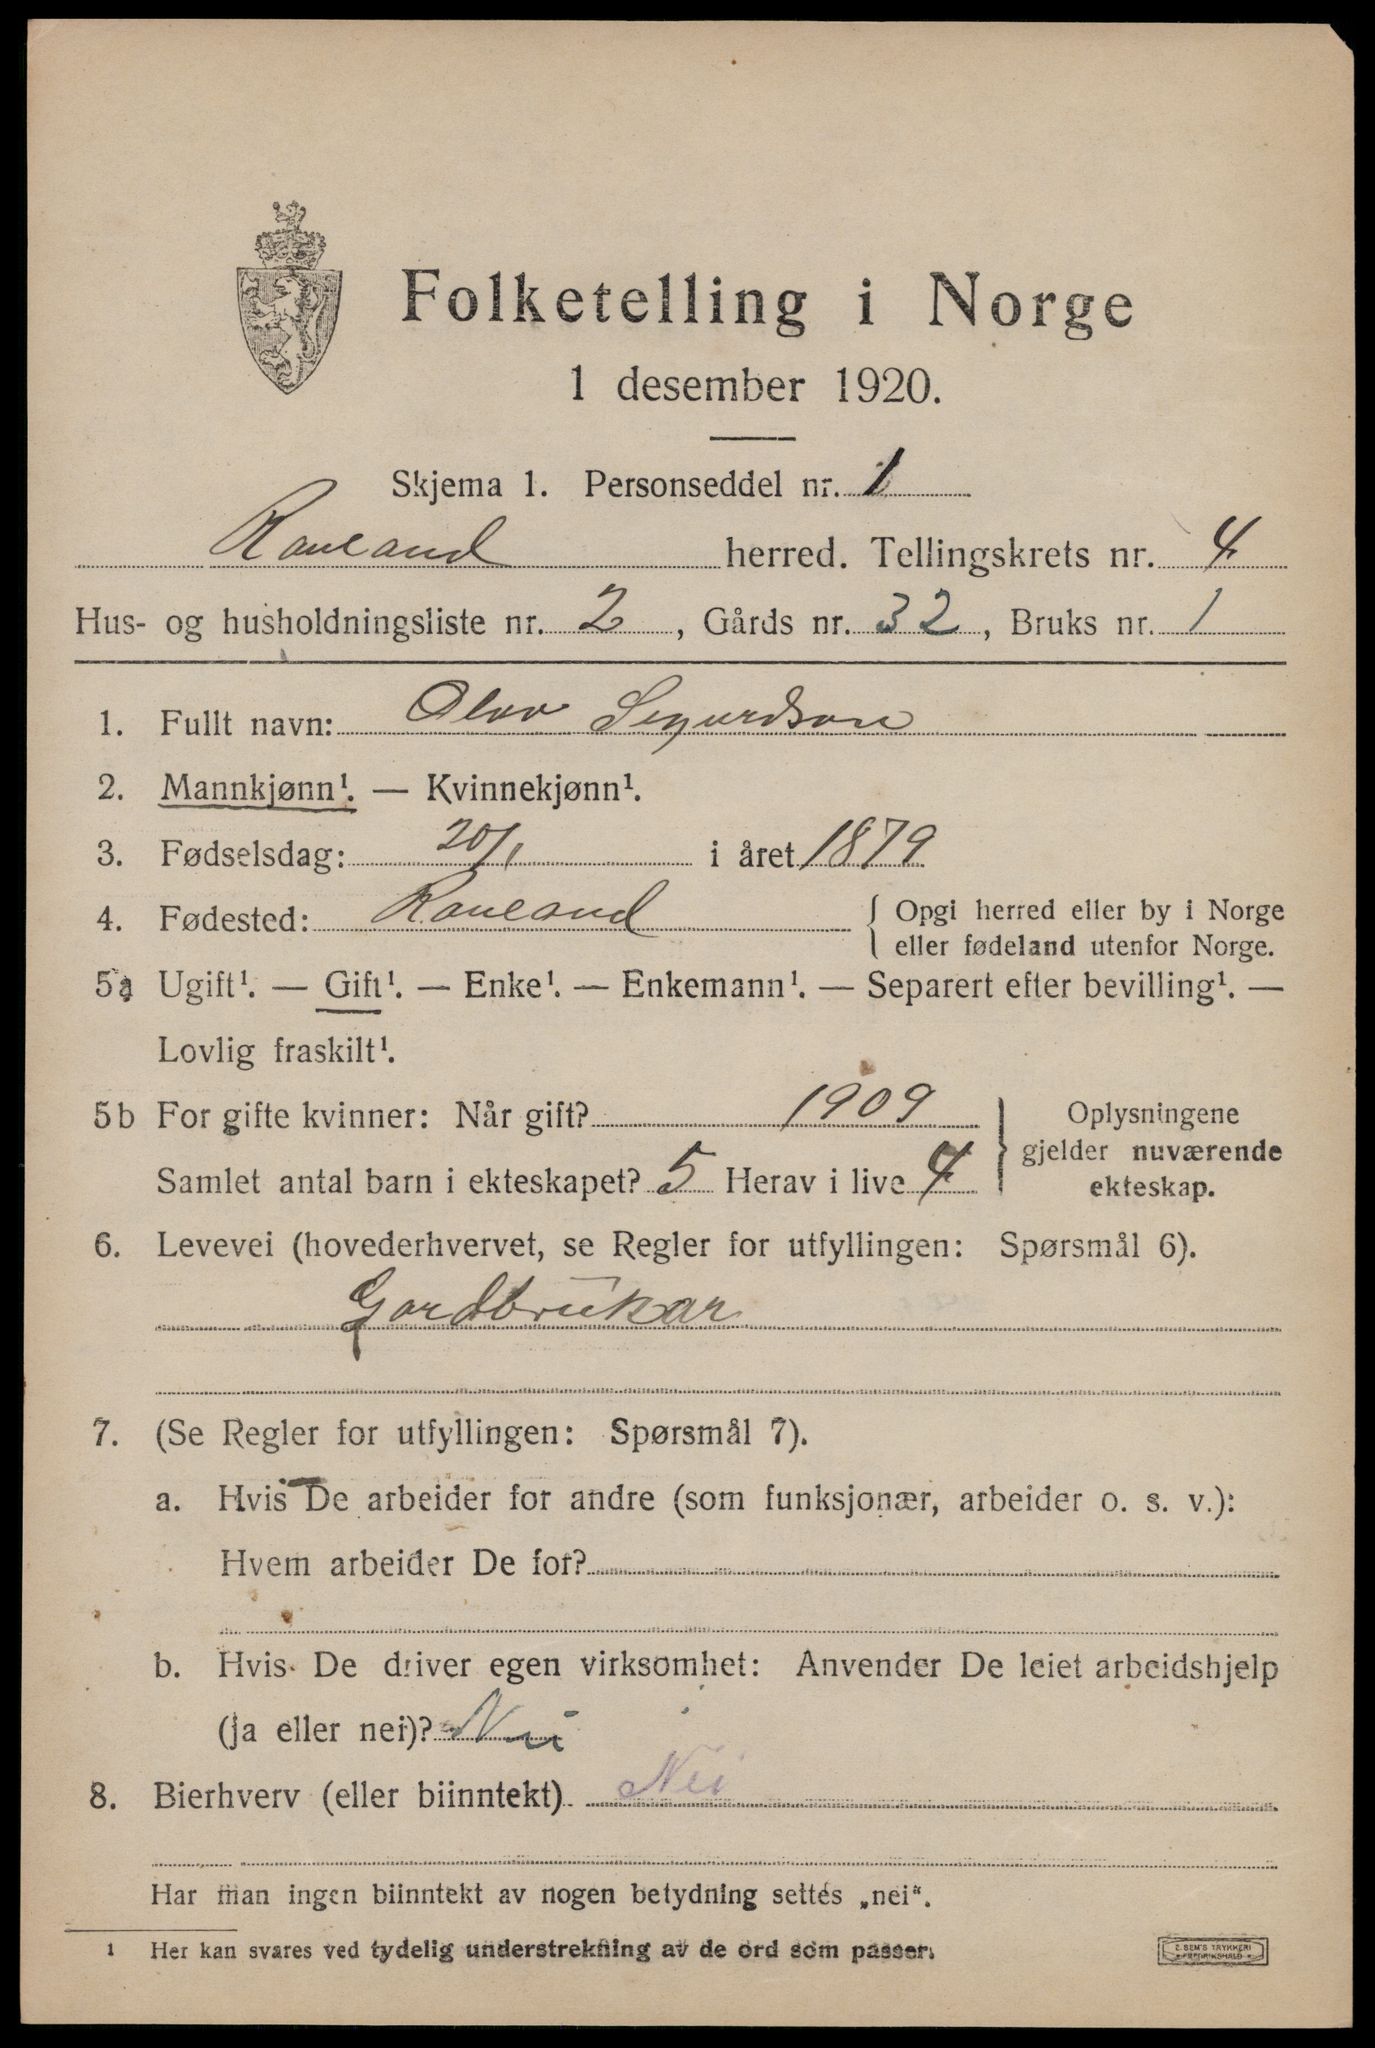 Folketelling i Norge
1 desember 1920.
Skjema 1. Personseddel nr. 1
Rauland herred. Tellingskrets nr. 4
Hus- og husholdningsliste nr. 2, Gårds nr. 32, Bruks nr. 1
1. Fullt navn: Olav Sigurdson
2. Mannkjønn¹. — Kvinnekjønn¹.
3. Fødselsdag: 20/1 i året 1879
4. Fødested: Rauland { Opgi herred eller by i Norge
eller fødeland utenfor Norge.
5a Ugift¹. — Gift¹. — Enke¹. — Enkemann¹. — Separert efter bevilling¹. —
Lovlig fraskilt¹.
5b For gifte kvinner: Når gift? 1909 } Oplysningene
gjelder nuværende
Samlet antal barn i ekteskapet? 5 Herav i live 4 ekteskap.
6. Levevei (hovederhvervet, se Regler for utfyllingen: Spørsmål 6).
Gardbrukar
7. (Se Regler for utfyllingen: Spørsmål 7).
a. Hvis De arbeider for andre (som funksjonær, arbeider o. s. v.):
Hvem arbeider De for?
b. Hvis De driver egen virksomhet: Anvender De leiet arbeidshjelp
(ja eller nei)? Nei
8. Bierhverv (eller biinntekt) Nei
Har man ingen biinntekt av nogen betydning settes „nei“.
1 Her kan svares ved tydelig understrekning av de ord som passer.
E. SEM'S TRYKKERI
FREDRIKSHALD